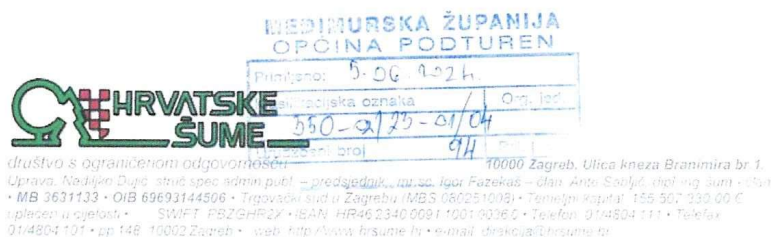 MEĐIMURSKA ŽUPANIJA
OPĆINA PODTUREN
Primljeno: 5. 06. 2024.
oznaka Org. jed.
HRVATSKE
ŠUME
broj 94
društvo s ograničenom odgovornošću 10000 Zagreb, Ulica kneza Branimira br 1.
Uprava: Nediljko Dujić, struč.spec.admin.publ. – predsjednik, mr.sc. Igor Fazekaš – član, Ante Sabljić, dipl.ing.šum - član
• MB 3631133 • OIB 69693144506 • Trgovački sud u Zagrebu (MBS 080251008) • Temeljni kapital
uplaćen u cijelosti • SWIFT: PBZGHR2X • IBAN: • Telefon: 01/4804 111 • Telefax
01/4804 101 • pp 148 10002 Zagreb • web: http://www.hrsume.hr • e-mail: direkcija@hrsume.hr